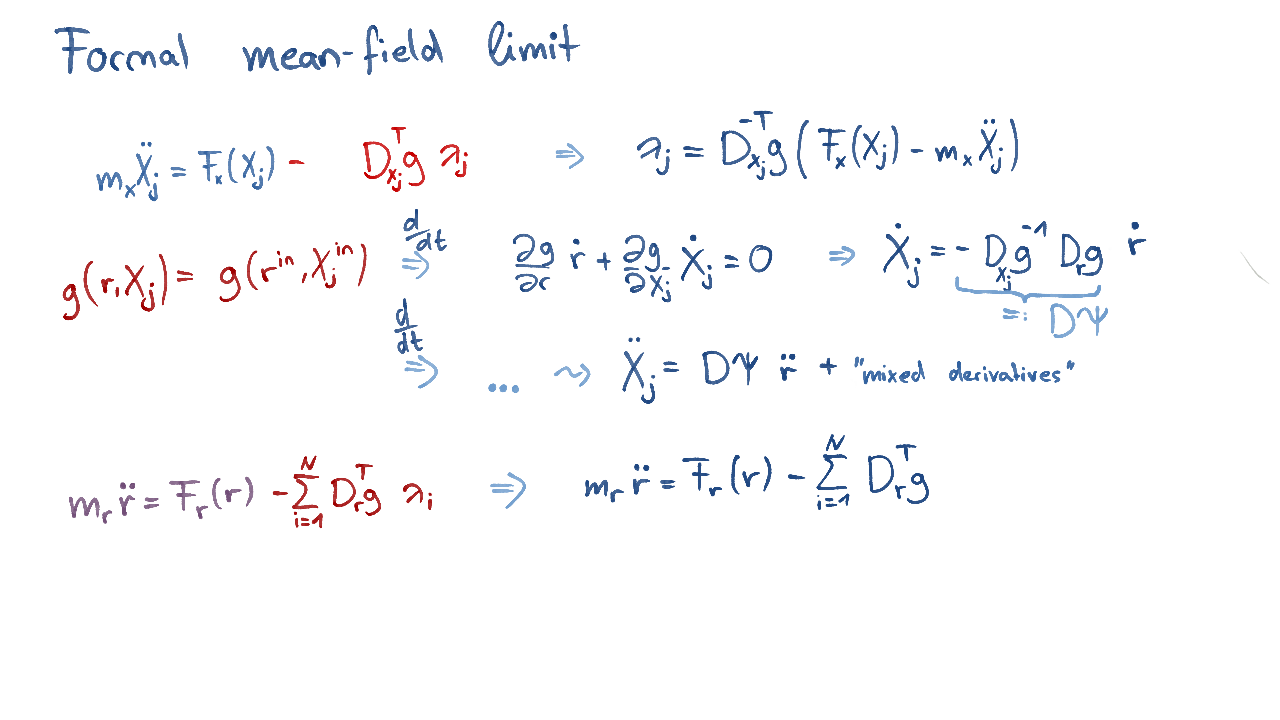 Formal mean-field limit
m_x Ẍ_j = F_x(X_j) - D_{x_j}^T g λ_j ⇒ λ_j = D_{x_j}^{-T} g (F_x(X_j) - m_x Ẍ_j)
g(r, X_j) = g(r^{in}, X_j^{in}) d/dt ⇒ ∂g/∂r ṙ + ∂g/∂X_j Ẋ_j = 0 ⇒ Ẋ_j = - D_{x_j} g^{-1} D_r g ṙ
=: DΨ
d/dt ⇒ ... ⤳ Ẍ_j = DΨ r̈ + "mixed derivatives"
m_r r̈ = F_r(r) - ∑_{i=1}^N D_r^T g λ_i ⇒ m_r r̈ = F_r(r) - ∑_{i=1}^N D_r^T g